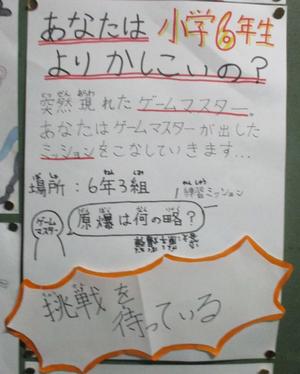 あなたは 小学6年生
より かしこいの?
突然現れたゲームマスター。
あなたはゲームマスターが出した
ミッションをこなしていきます…
場所:6年3組
練習ミッション
ゲームマスター
原爆は何の略?
挑戦を
待っている